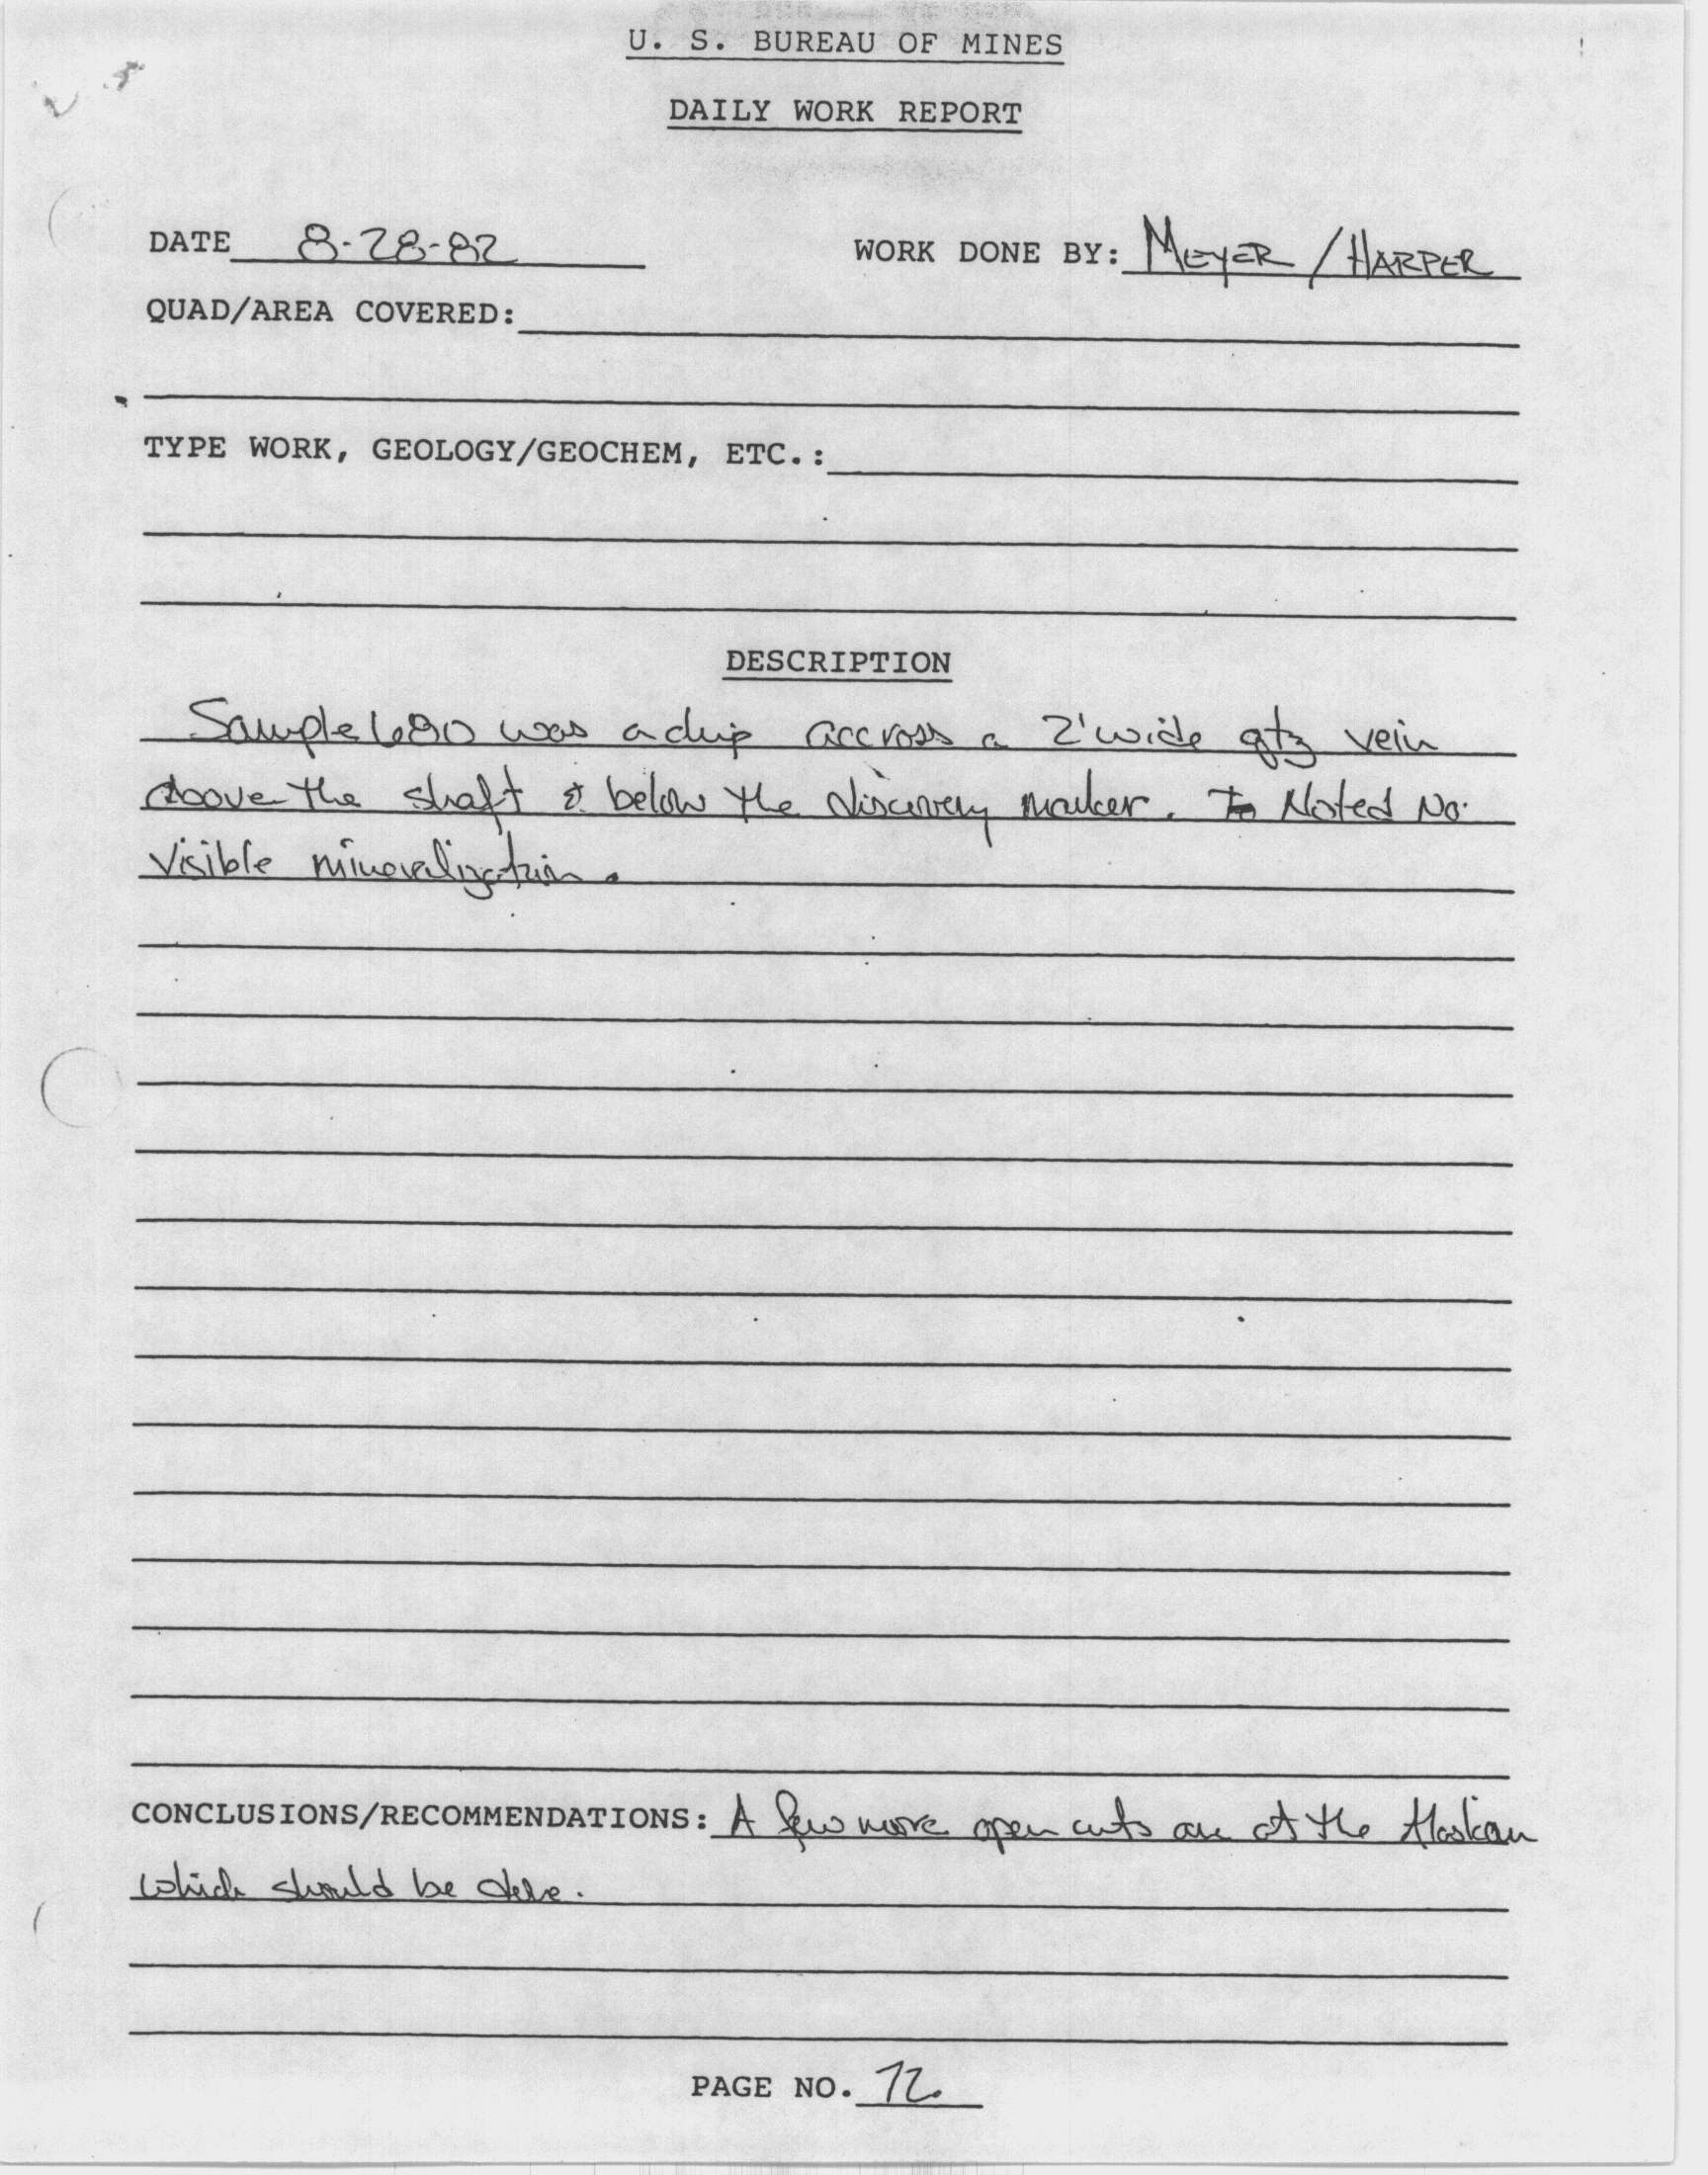 U. S. BUREAU OF MINES
DAILY WORK REPORT
DATE 8-28-82 WORK DONE BY: MEYER / HARPER
QUAD/AREA COVERED:
TYPE WORK, GEOLOGY/GEOCHEM, ETC.:
DESCRIPTION
Sample 690 was a chip accross a 2' wide qtz vein
above the shaft & below the discovery marker. Noted No
visible mineralization.
CONCLUSIONS/RECOMMENDATIONS: A few more open cuts are at the Alaskan
which should be done.
PAGE NO. 72